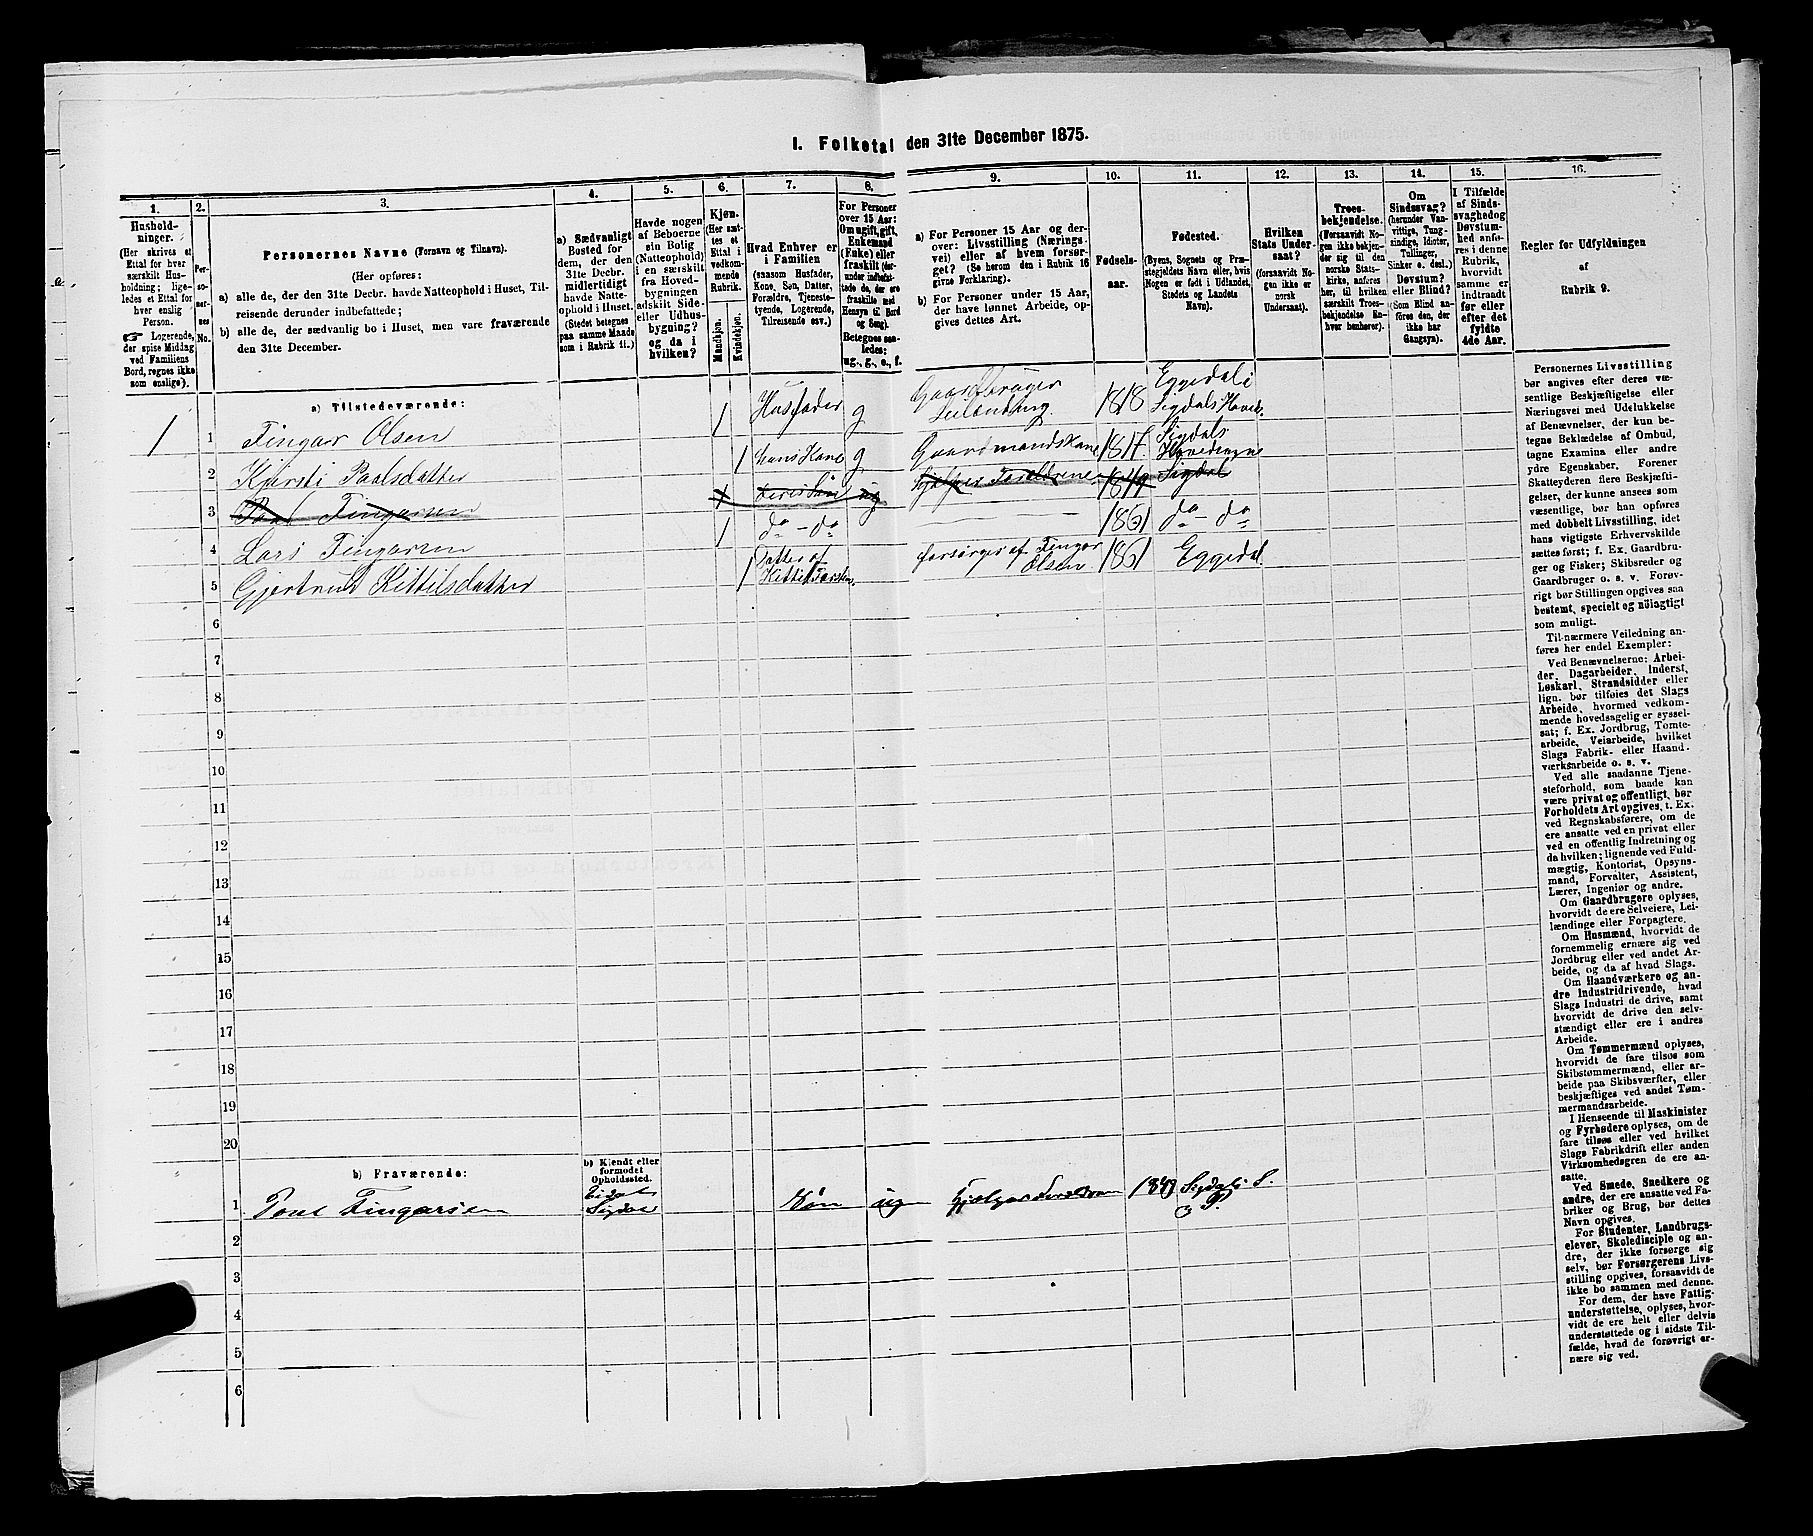 I. Folketal den 31te December 1875.
1.
2.
3.
4.
5.
6.
7.
8.
9.
10.
11.
12.
13.
14.
15.
16.
Hushold-
ninger.
(Her skrives et
Ettal for hver
særskilt Hus-
holdning; lige-
ledes et Ettal for
hver enslig
Person.
☞ Logerende,
der spise Middag
ved Familiens
Bord, regnes ikke
som enslige).
Per-
so-
ner-
nes
No.
Personernes Navne (Fornavn og Tilnavn).
(Her opføres:
a) alle de, der den 31te Decbr. havde Natteophold i Huset, Til-
reisende derunder indbefattede;
b) alle de, der sædvanlig bo i Huset, men vare fraværende
den 31te December.
a) Sædvanligt
Bosted for
dem, der den
31te Decbr.
midlertidigt
havde Natte-
ophold i Huset.
(Stedet betegnes
paa samme Maade
som i Rubrik 11.)
Havde nogen
af Beboerne
sin Bolig
(Natteophold)
i en særskilt
fra Hoved-
bygningen
adskilt Side-
eller Udhus-
bygning?
og da i
hvilken?
Kjøn.
(Her sæt-
tes et
Ettal i
vedkom-
mende
Rubrik.
Mandkjøn.
Kvindekjøn.
Hvad Enhver er
i Familien
(saasom Husfader,
Kone, Søn, Datter,
Forældre, Tjeneste-
tyende, Logerende,
Tilreisende osv.)
For Personer
over 15 Aar:
Om ugift, gift,
Enkemand
(Enke) eller
fraskilt (der-
under indbefat-
tede de, der ere
fraskilte med
Hensyn til Bord
og Seng).
Betegnes saa-
ledes:
ug., g., e., f.
a) For Personer 15 Aar og der-
over: Livsstilling (Nærings-
vei) eller af hvem forsør-
get? (Se herom den i Rubrik 16
givne Forklaring).
b) For Personer under 15 Aar,
der have lønnet Arbeide, op-
gives dettes Art.
Fødsels-
aar.
Fødested.
(Byens, Sognets og Præ-
stegjeldets Navn eller, hvis
Nogen er født i Udlandet,
Stedets og Landets
Navn).
Hvilken
Stats Under-
saat?
(forsaavidt No-
gen ikke er
norsk
Undersaat).
Troes-
bekjendelse.
(Forsaavidt No-
gen ikke bekjen-
der sig til den
norske Stats-
kirke, anføres
her, til hvilken
særskilt Troes-
bekjendelse En-
hver henhører).
Om
Sindssvag?
(herunder Van-
vittige, Tung-
sindige, Idioter,
Tullinger,
Sinker o. desl.)
Døvstum?
eller Blind?
(Som Blind an-
føres den, der
ikke har
Gangsyn).
I Tilfælde
af Sinds-
svaghed og
Døvstum-
hed anfø-
res i denne
Rubrik,
hvorvidt
samme er
indtraadt
før eller
efter det
fyldte
4de Aar.
Regler for Udfyldningen
af
Rubrik 9.
a) Tilstedeværende:
1 1 Fingar Olsen 1 Husfader g Gaardbruger Leilending. 1818 Eggedal i Sigdals Hoveds.
2 Kjersti Paalsdatter 1 hans Kone g Gaardmandskone 1817 Sigdals Hovedsogne
3 Paal Fingarsen 1 deres Søn ug hjelper Forældrene Sigdal
4 Lars Fingarsen 1 do – do 1861 do – do
5 Gjertrud Kittilsdatter 1 Datter af Kittil Torsten. forsørges af Fingar Olsen 1861 Eggedal.
6
7
8
9
10
11
12
13
14
15
16
17
18
19
20
b) Fraværende:
b) Kjendt eller
formodet
Opholdssted.
1 Paul Fingarsen Sigdal Søn ug Hjelper Forældrene Sigdals S. P.
2
3
4
5
6
Personernes Livsstilling
bør angives efter deres væ-
sentlige Beskjæftigelse eller
Næringsvei med Udelukkelse
af Benævnelser, der kun be-
tegne Beklædelse af Ombud,
tagne Examina eller andre
ydre Egenskaber. Forener
Skatteyderen flere Beskjæfti-
gelser, der kunne ansees som
væsentlige, bør han opføres
med dobbelt Livsstilling, idet
hans vigtigste Erhvervskilde
sættes først; f. Ex. Gaardbru-
ger og Fisker; Skibsreder og
Gaardbruger o. s. v. Forøv-
rigt bør Stillingen opgives saa
bestemt, specielt og nøiagtigt
som muligt.
Til nærmere Veiledning an-
føres her endel Exempler:
Ved Benævnelserne: Arbei-
der, Dagarbeider, Inderst,
Løskarl, Strandsidder eller
lign. bør tilføies det Slags
Arbeide, hvormed vedkom-
mende hovedsagelig er syssel-
sat; f. Ex. Jordbrug, Tomte-
arbeide, Veiarbeide, hvilket
Slags Fabrik- eller Haand-
værksarbeide o. s. v.
Ved alle saadanne Tjene-
steforhold, som baade kan
være privat og offentligt, bør
Forholdets Art opgives, t. Ex.
ved Regnskabsførere, om de
ere ansatte ved en privat eller
ved en offentlig Indretning og
da hvilken; lignende ved Fuld-
mægtig, Kontorist, Opsyns-
mand, Forvalter, Assistent,
Lærer, Ingeniør og andre.
Om Gaardbrugere oplyses,
hvorvidt de ere Selveiere, Lei-
lændinge eller Forpagtere.
Om Husmænd, hvorvidt de
fornemmelig ernære sig ved
Jordbrug eller ved andet Ar-
beide, og da af hvad Slags.
Om Haandværkere og an-
dre Industridrivende, hvad
Slags Industri de drive, samt
hvorvidt de drive den selv-
stændigt eller ere i andres
Arbeide.
Om Tømmermænd oplyses,
hvorvidt de fare tilsøs som
Skibstømmermænd, eller ar-
beide paa Skibsværfter, eller
beskjæftiges ved andet Tøm-
mermandsarbeide.
I Henseende til Maskinister
og Fyrbødere oplyses, om de
fare tilsøs eller ved hvilket
Slags Fabrikdrift eller anden
Virksomhedsgren de ere an-
satte.
Ved Smede, Snedkere og
andre, der ere ansatte ved Fa-
briker og Brug, bør dettes
Navn opgives.
For Studenter, Landbrugs-
elever, Skoledisciple og an-
dre, der ikke forsørge sig
selv, bør Forsørgerens Livs-
stilling opgives, forsaavidt de
ikke bo sammen med denne.
For dem, der have Fattig-
understøttelse, oplyses, hvor-
vidt de ere helt eller delvis
understøttede og i sidste Til-
fælde, hvad de forøvrigt er-
nære sig ved.